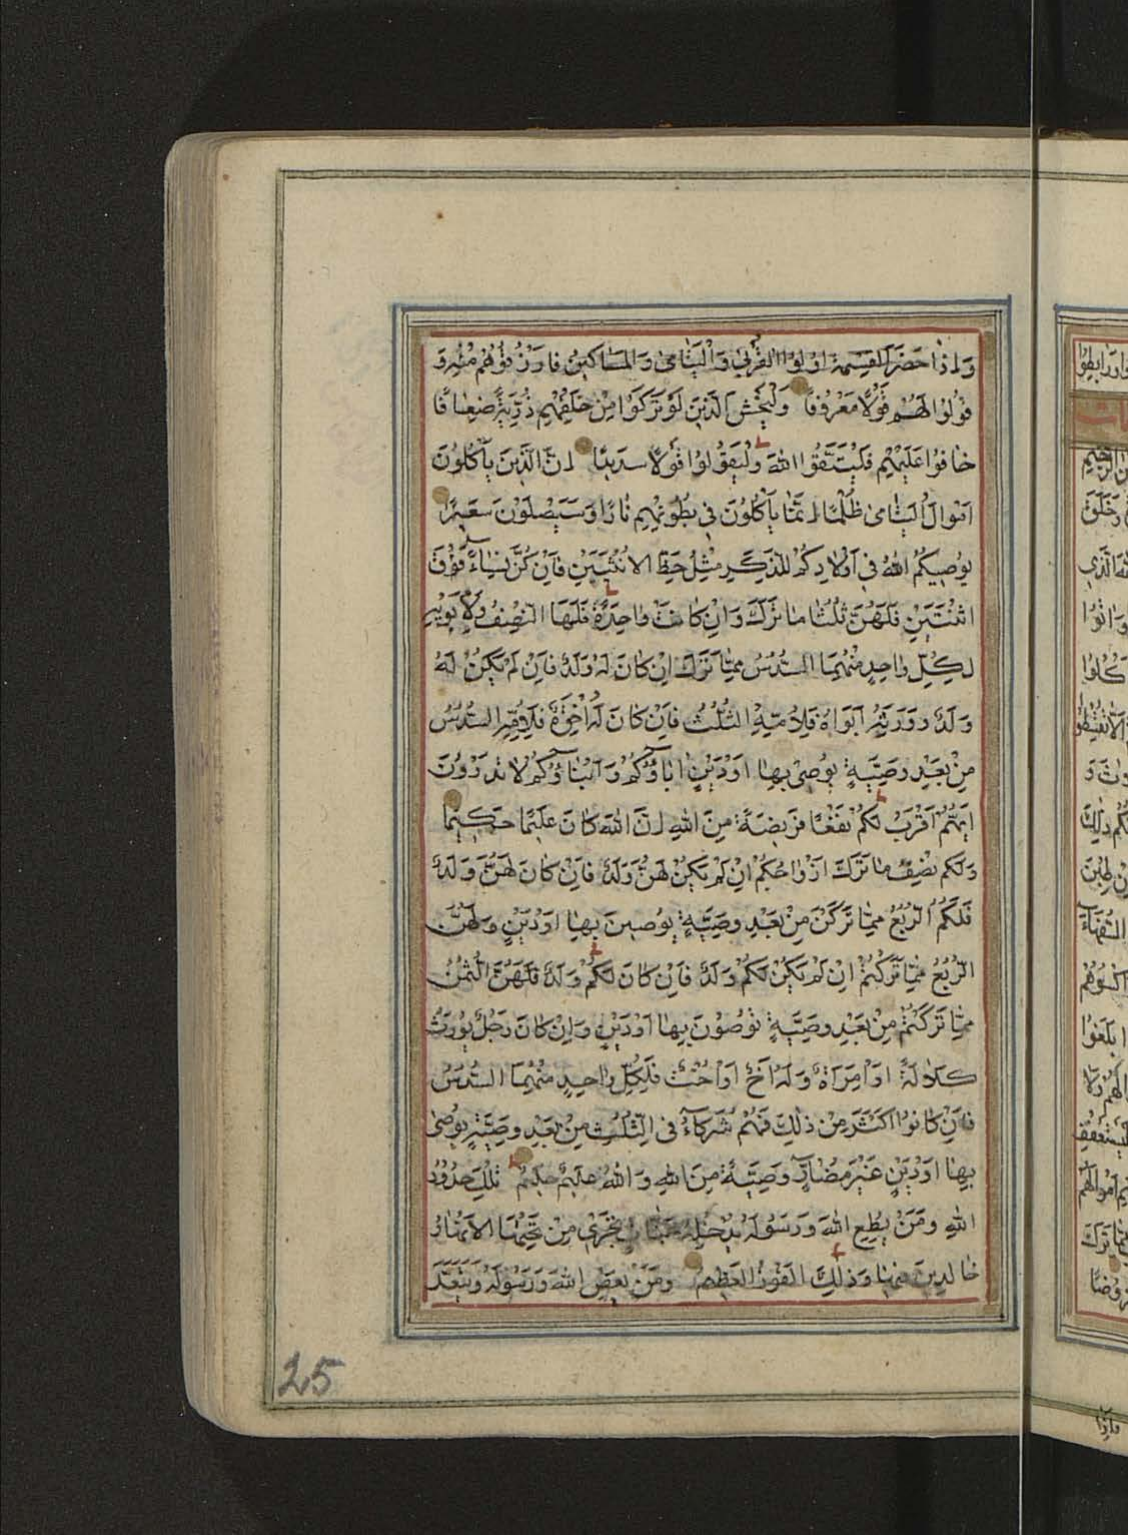 وَإِذَا حَضَرَ الْقِسْمَةَ أُولُوا الْقُرْبَىٰ وَالْيَتَامَىٰ وَالْمَسَاكِينُ فَارْزُقُوهُمْ مِنْهُ وَ
قُولُوا لَهُمْ قَوْلًا مَعْرُوفًا وَلْيَخْشَ الَّذِينَ لَوْ تَرَكُوا مِنْ خَلْفِهِمْ ذُرِّيَّةً ضِعَافًا
خَافُوا عَلَيْهِمْ فَلْيَتَّقُوا اللَّهَ وَلْيَقُولُوا قَوْلًا سَدِيدًا إِنَّ الَّذِينَ يَأْكُلُونَ
أَمْوَالَ الْيَتَامَىٰ ظُلْمًا إِنَّمَا يَأْكُلُونَ فِي بُطُونِهِمْ نَارًا وَسَيَصْلَوْنَ سَعِيرًا
يُوصِيكُمُ اللَّهُ فِي أَوْلَادِكُمْ لِلذَّكَرِ مِثْلُ حَظِّ الْأُنْثَيَيْنِ فَإِنْ كُنَّ نِسَاءً فَوْقَ
اثْنَتَيْنِ فَلَهُنَّ ثُلُثَا مَا تَرَكَ وَإِنْ كَانَتْ وَاحِدَةً فَلَهَا النِّصْفُ وَلِأَبَوَيْهِ
لِكُلِّ وَاحِدٍ مِنْهُمَا السُّدُسُ مِمَّا تَرَكَ إِنْ كَانَ لَهُ وَلَدٌ فَإِنْ لَمْ يَكُنْ لَهُ
وَلَدٌ وَوَرِثَهُ أَبَوَاهُ فَلِأُمِّهِ الثُّلُثُ فَإِنْ كَانَ لَهُ إِخْوَةٌ فَلِأُمِّهِ السُّدُسُ
مِنْ بَعْدِ وَصِيَّةٍ يُوصِي بِهَا أَوْ دَيْنٍ آبَاؤُكُمْ وَأَبْنَاؤُكُمْ لَا تَدْرُونَ
أَيُّهُمْ أَقْرَبُ لَكُمْ نَفْعًا فَرِيضَةً مِنَ اللَّهِ إِنَّ اللَّهَ كَانَ عَلِيمًا حَكِيمًا
وَلَكُمْ نِصْفُ مَا تَرَكَ أَزْوَاجُكُمْ إِنْ لَمْ يَكُنْ لَهُنَّ وَلَدٌ فَإِنْ كَانَ لَهُنَّ وَلَدٌ
فَلَكُمُ الرُّبُعُ مِمَّا تَرَكْنَ مِنْ بَعْدِ وَصِيَّةٍ يُوصِينَ بِهَا أَوْ دَيْنٍ وَلَهُنَّ
الرُّبُعُ مِمَّا تَرَكْتُمْ إِنْ لَمْ يَكُنْ لَكُمْ وَلَدٌ فَإِنْ كَانَ لَكُمْ وَلَدٌ فَلَهُنَّ الثُّمُنُ
مِمَّا تَرَكْتُمْ مِنْ بَعْدِ وَصِيَّةٍ تُوصُونَ بِهَا أَوْ دَيْنٍ وَإِنْ كَانَ رَجُلٌ يُورَثُ
كَلَالَةً أَوِ امْرَأَةٌ وَلَهُ أَخٌ أَوْ أُخْتٌ فَلِكُلِّ وَاحِدٍ مِنْهُمَا السُّدُسُ
فَإِنْ كَانُوا أَكْثَرَ مِنْ ذَٰلِكَ فَهُمْ شُرَكَاءُ فِي الثُّلُثِ مِنْ بَعْدِ وَصِيَّةٍ يُوصَىٰ
بِهَا أَوْ دَيْنٍ غَيْرَ مُضَارٍّ وَصِيَّةً مِنَ اللَّهِ وَاللَّهُ عَلِيمٌ حَلِيمٌ تِلْكَ حُدُودُ
اللَّهِ وَمَنْ يُطِعِ اللَّهَ وَرَسُولَهُ يُدْخِلْهُ جَنَّاتٍ تَجْرِي مِنْ تَحْتِهَا الْأَنْهَارُ
خَالِدِينَ فِيهَا وَذَٰلِكَ الْفَوْزُ الْعَظِيمُ وَمَنْ يَعْصِ اللَّهَ وَرَسُولَهُ وَيَتَعَدَّ
25